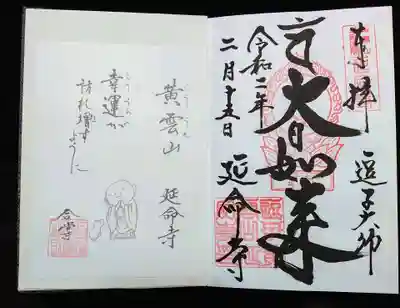 奉拝
逗子大師
大日如来
令和二年
二月十五日
延命寺
黄雲山
延命寺
幸運が
訪れ増す
ように
合掌